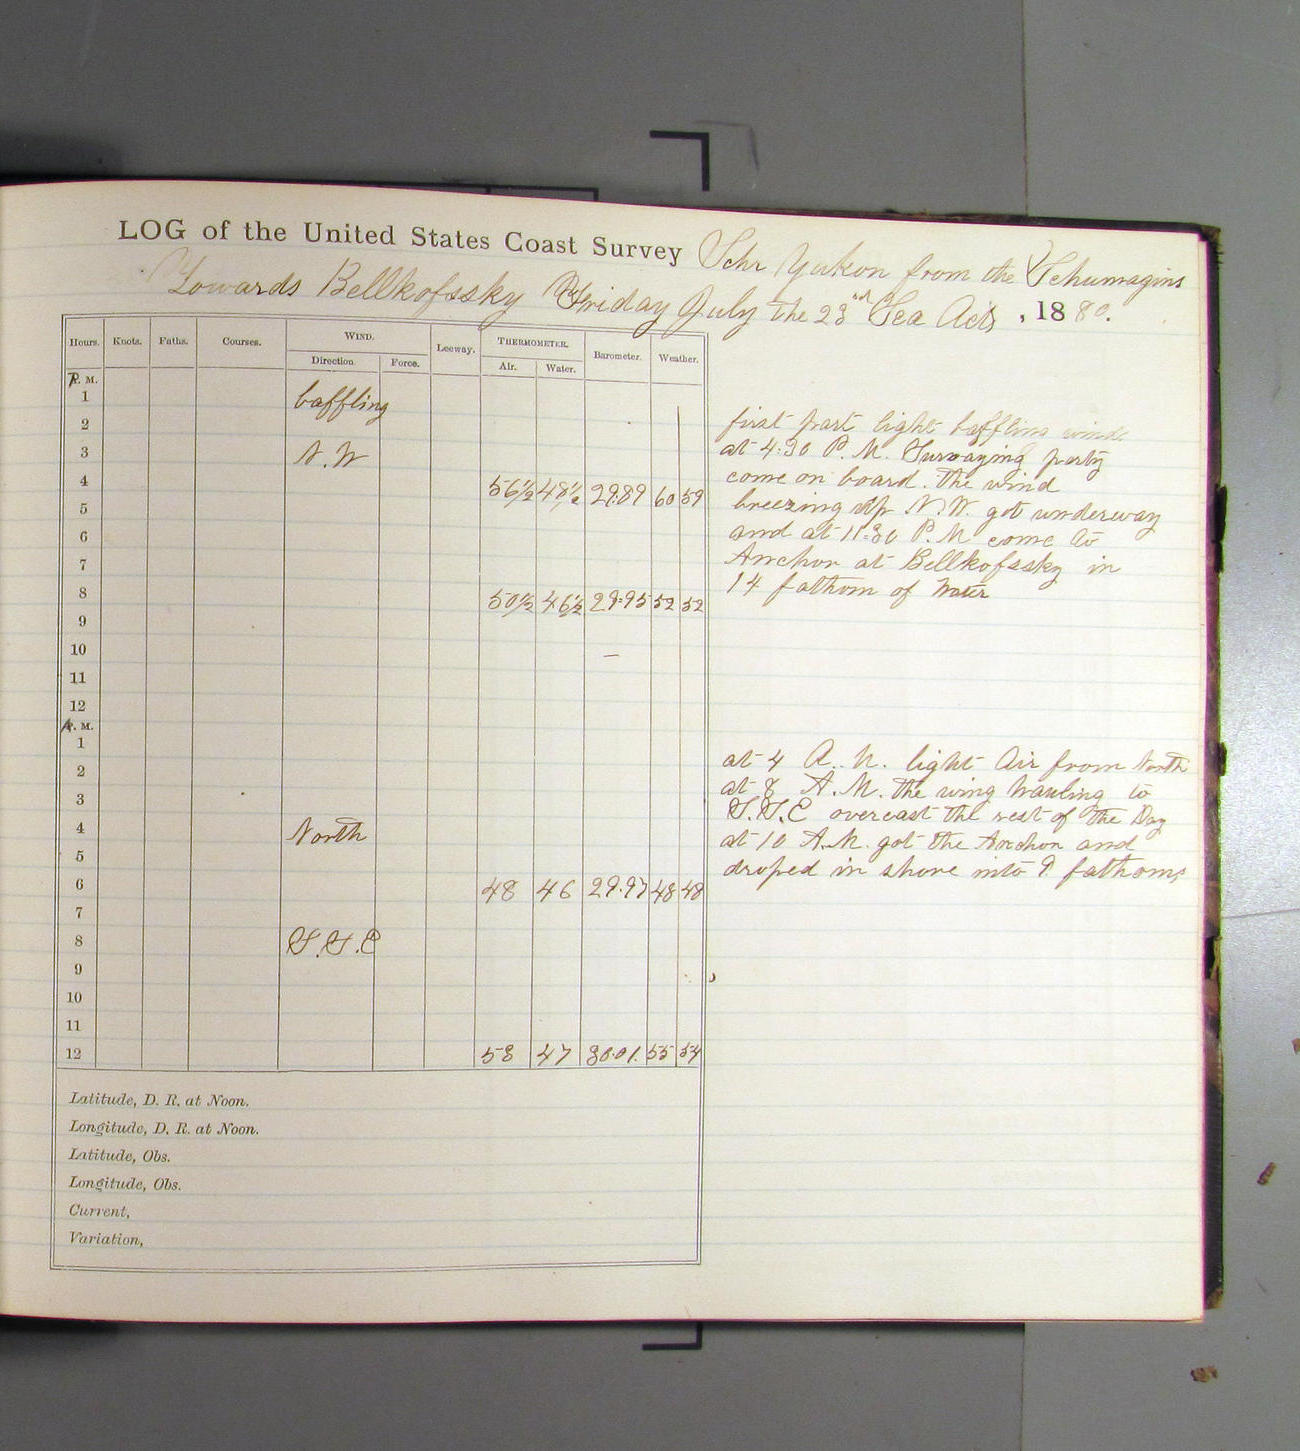 LOG of the United States Coast Survey Schr Yukon from the Schumagins
Towards Bellkofssky Friday July the 23rd Sea Acts, 1880.
Hours. Knots. Faths. Courses. WIND. Leeway. THERMOMETER. Barometer. Weather.
Direction. Force. Air. Water.
P. M.
1 baffling
2
3 N.W
4 56½ 48½ 29.89 60 59
5
6
7
8 50½ 46½ 29.95 52 52
9
10 –
11
12
A. M.
1
2
3
4 North
5
6 48 46 29.97 48 48
7
8 S.S.E
9
10
11
12 58 47 30.01. 55 54
Latitude, D. R. at Noon.
Longitude, D. R. at Noon.
Latitude, Obs.
Longitude, Obs.
Current,
Variation,
first part light baffling winds
at 4:30 P. M. Survaying party
come on board. the wind
breezing up N.W. got underway
and at 11:30 P.M come to
Anchor at Bellkofssky in
14 fathom of Water
at 4 A. M. light Air from North
at 8 A.M. the wing hauling to
S.S.E overcast the rest of the Day
at 10 A.M. got the Anchor and
droped in shore into 9 fathoms